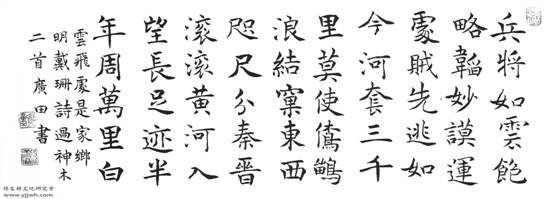 兵將如雲飽
略韜妙謨運
處賊先逃如
今河套三千
里莫使鵂鶹
浪結窠東西
咫尺分秦晉
滾滾黃河入
望長足迹半
年周萬里白
雲飛處是家鄉
明戴珊詩過神木
二首廣田書
楊家將文化研究會
www.yjjwh.com